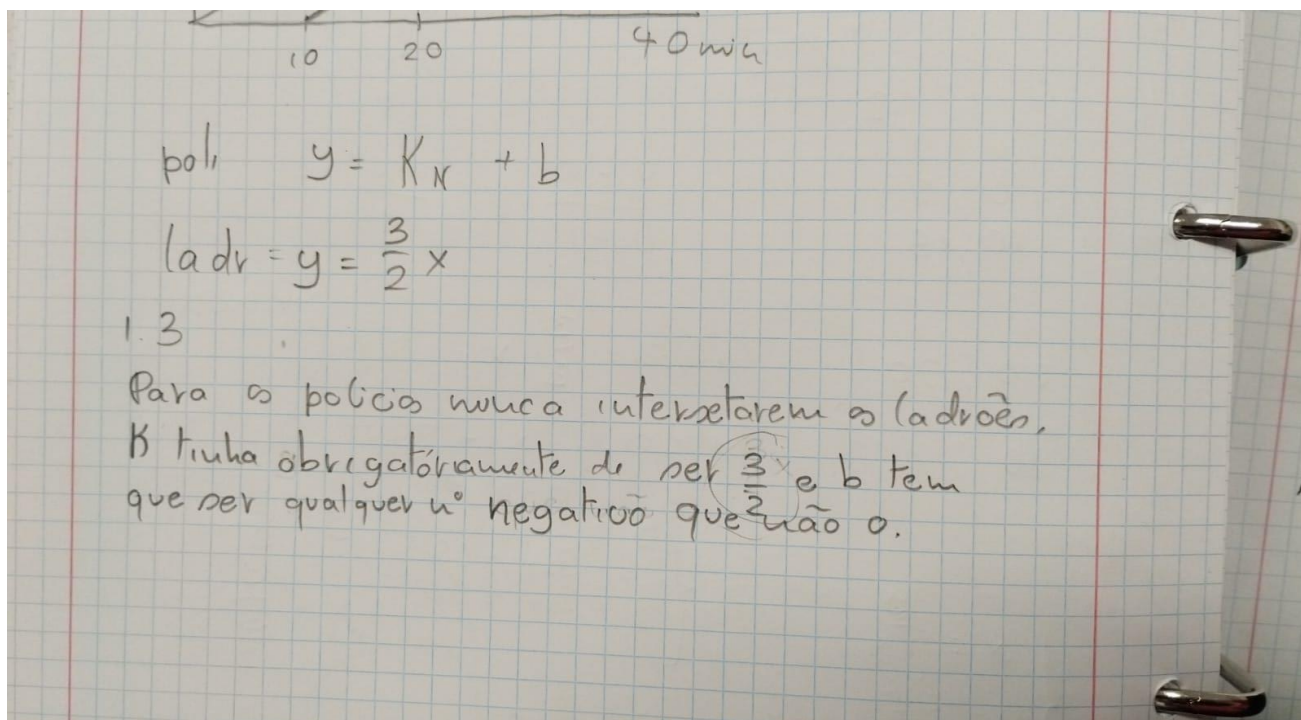 10 20 40 min
poli y = K x + b
ladr = y = 3/2 x
1.3
Para os policias nunca intersetarem os ladrões,
K tinha obrigatóriamente de ser 3/2 e b tem
que ser qualquer nº negativo que não 0.